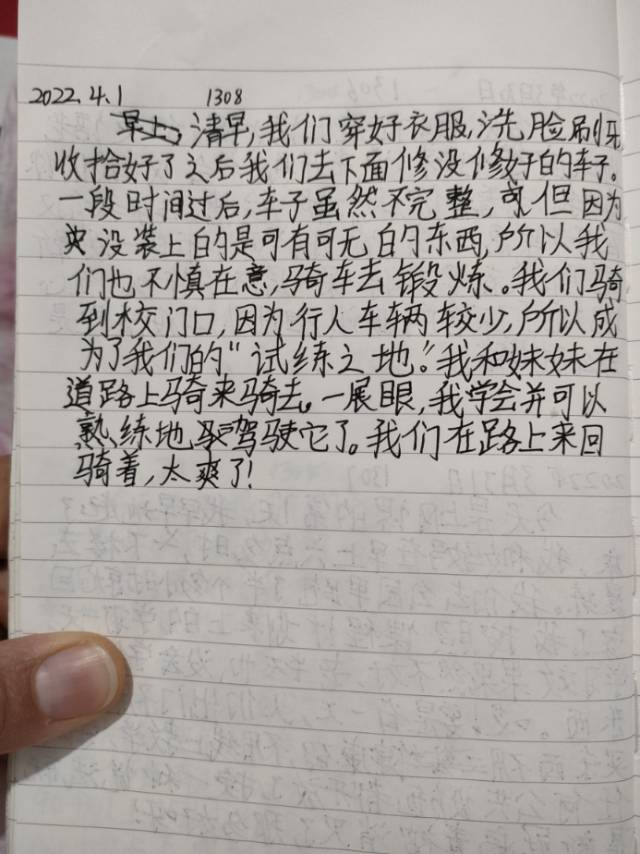 2022.4.1 1308
清早,我们穿好衣服,洗脸刷牙
收拾好了之后我们去下面修没修好的车子。
一段时间过后,车子虽然不完整,但因为
没装上的是可有可无的东西,所以我
们也不慎在意,骑车去锻炼。我们骑
到校门口,因为行人车辆较少,所以成
为了我们的“试练之地”。我和妹妹在
道路上骑来骑去。一展眼,我学会并可以
熟练地驾驶它了。我们在路上来回
骑着,太爽了!